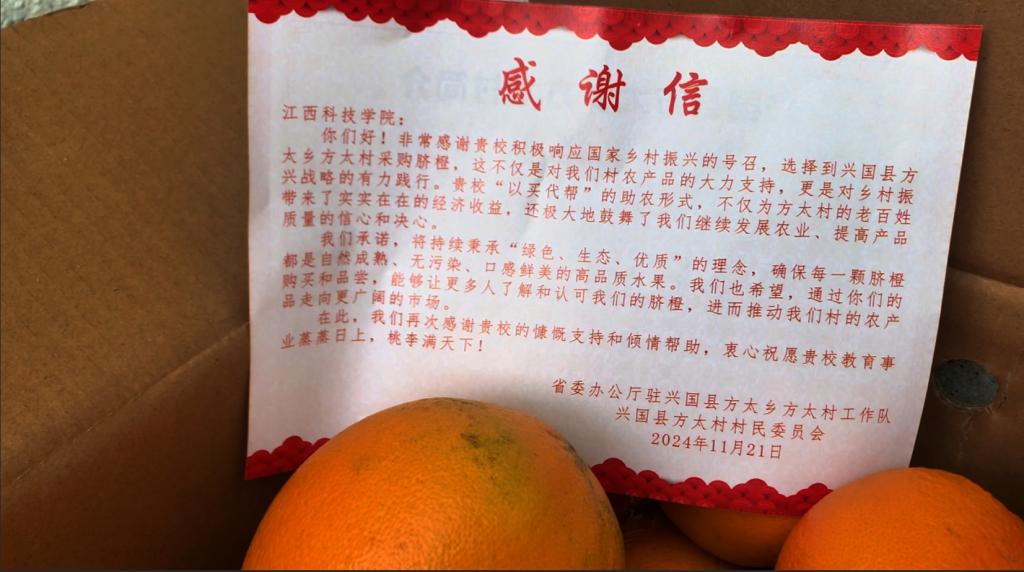 感谢信
江西科技学院：
你们好！非常感谢贵校积极响应国家乡村振兴的号召，选择到兴国县方
太乡方太村采购脐橙，这不仅是对我们村农产品的大力支持，更是对乡村振
兴战略的有力践行。贵校“以买代帮”的助农形式，不仅为方太村的老百姓
带来了实实在在的经济收益，还极大地鼓舞了我们继续发展农业、提高产品
质量的信心和决心。
我们承诺，将持续秉承“绿色、生态、优质”的理念，确保每一颗脐橙
都是自然成熟、无污染、口感鲜美的高品质水果。我们也希望，通过你们的
购买和品尝，能够让更多人了解和认可我们的脐橙，进而推动我们村的农产
品走向更广阔的市场。
在此，我们再次感谢贵校的慷慨支持和倾情帮助，衷心祝愿贵校教育事
业蒸蒸日上，桃李满天下！
省委办公厅驻兴国县方太乡方太村工作队
兴国县方太村村民委员会
2024年11月21日